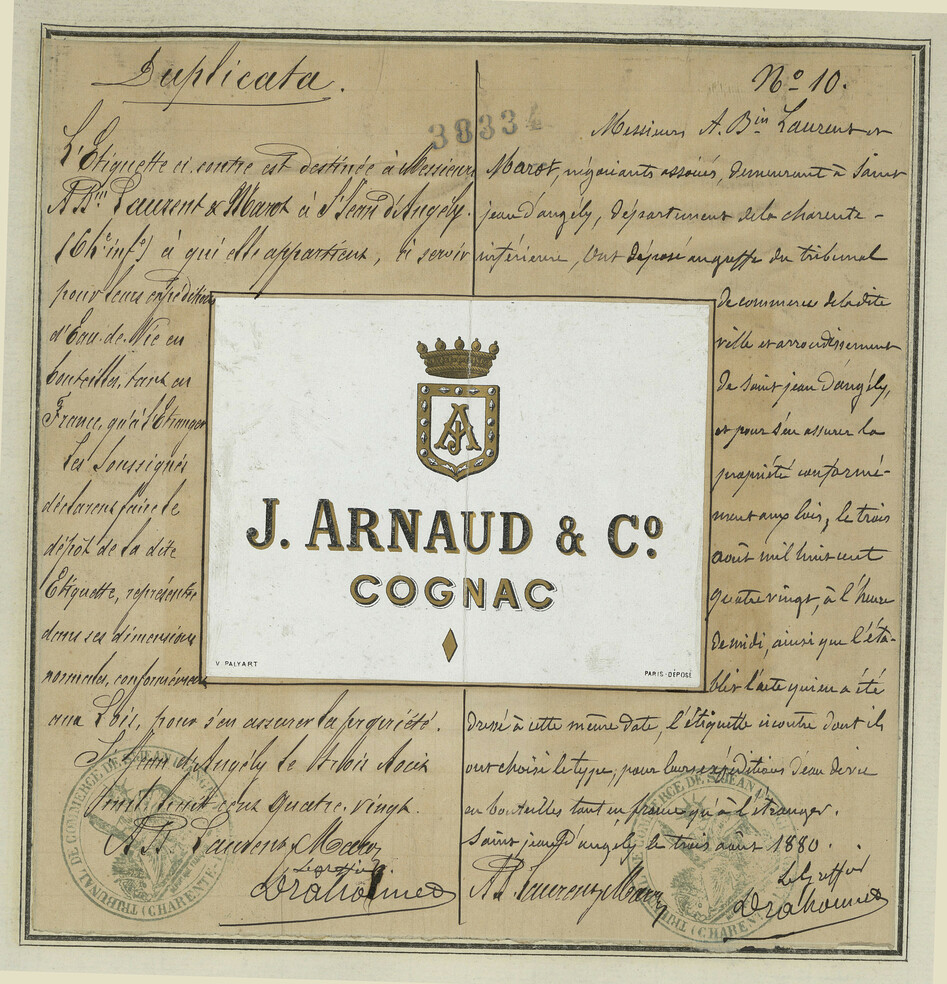 Duplicata.
38334
L'Etiquette ci contre est destinée à Messieurs
A Bin Laurent & Marot à St Jean d'Angély.
(Ch.te inf.re) à qui elle appartient, à servir
pour leurs expéditions
d'Eau-de-Vie en
bouteilles, tant en
France, qu'à l'Etranger
Les Soussignés
déclarent faire le
dépôt de la dite
Etiquette, représentée
dans ses dimensions
normales, conformément
aux Lois, pour s'en assurer la propriété.
St Jean d'Angély le trois Août
mil huit cent quatre-vingt
A B Laurent & Marot
Le greffier
No 10.
Messieurs A. Bin Laurent et
Marot, négociants associés, demeurant à Saint
jean d'angély, département de la charente-
inférieure, ont déposé au greffe du tribunal
de commerce de la dite
ville et arrondissement
de Saint jean d'angély,
et pour s'en assurer la
propriété conformé-
ment aux lois, le trois
août mil huit cent
quatre vingt, à l'heure
de midi, ainsi que l'éta-
blit l'acte qui en a été
dressé à cette même date, l'étiquette ci contre dont ils
ont choisi le type, pour leurs expéditions d'eau de vie
en bouteilles tant en france qu'à l'étranger.
Saint jean d'angély le trois août 1880.
A B Laurent & Marot
Le Greffier
AJ
J. ARNAUD & Co.
COGNAC
V. PALYART
PARIS-DÉPOSÉ
TRIBUNAL DE COMMERCE DE ST JEAN D'ANGELY (CHARENTE
TRIBUNAL DE COMMERCE DE ST JEAN D'ANGELY (CHARENTE